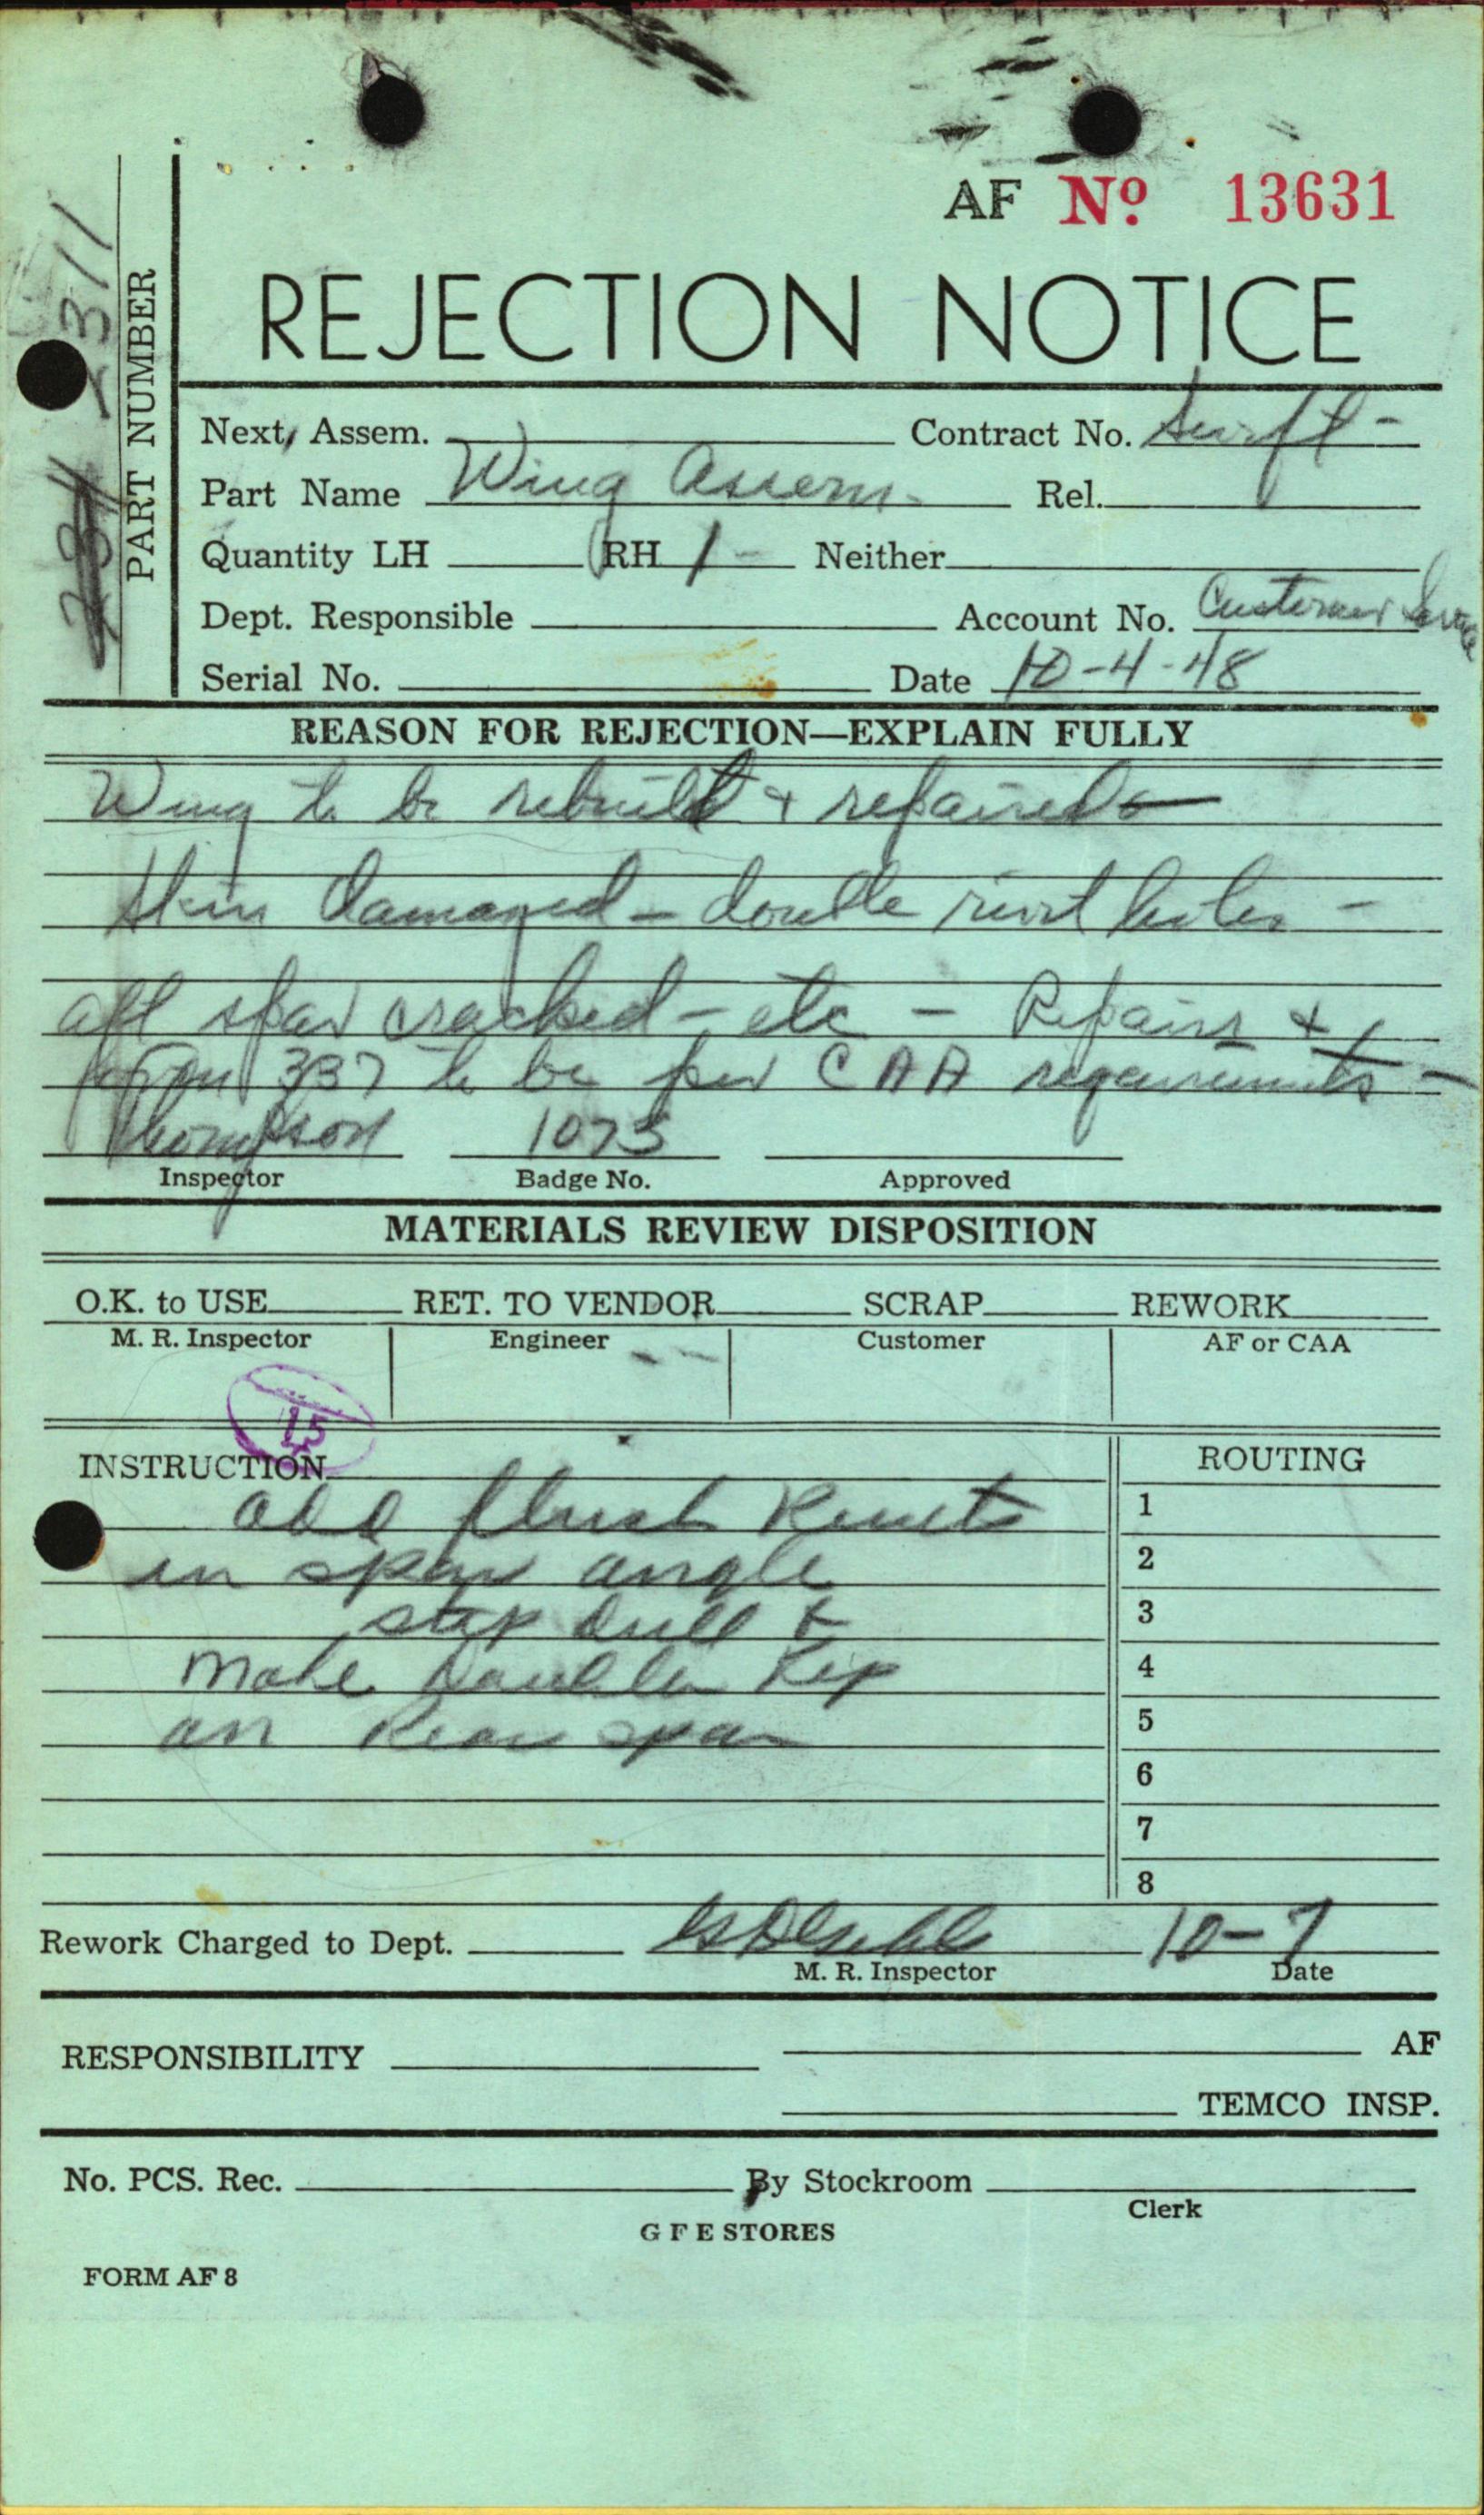 AF No 13631
PART NUMBER 2311
REJECTION NOTICE
Next Assem. Contract No. Swift -
Part Name Wing Assem. Rel.
Quantity LH RH 1 - Neither
Dept. Responsible Account No. Customer Service
Serial No. Date 10-4-48
REASON FOR REJECTION—EXPLAIN FULLY
Wing to be rebuilt & repaired -
Skin damaged - double rivet holes -
aft spar cracked - etc - Repairs &
form 337 to be per CAA requirements -
Thompson 1075
Inspector Badge No. Approved
MATERIALS REVIEW DISPOSITION
O.K. to USE RET. TO VENDOR SCRAP REWORK
M. R. Inspector Engineer Customer AF or CAA
15
INSTRUCTION ROUTING
add flush Rivets 1
in spar angle 2
stop drill & 3
Make Doubler Rep 4
on Rear spar 5
6
7
8
Rework Charged to Dept. 10-7
M. R. Inspector Date
RESPONSIBILITY AF
TEMCO INSP.
No. PCS. Rec. By Stockroom
Clerk
G F E STORES
FORM AF 8